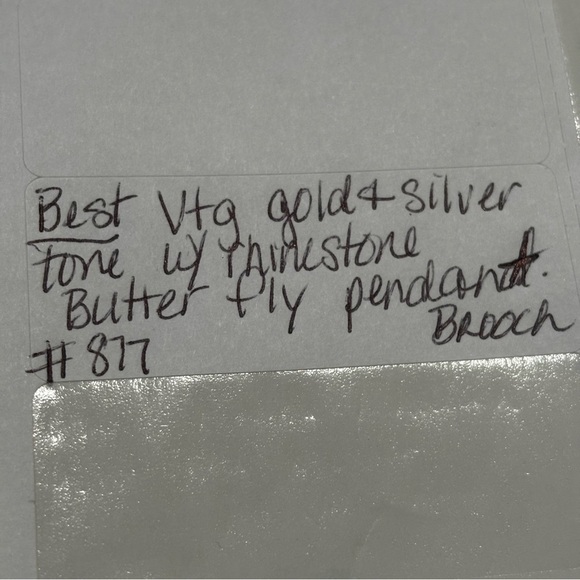 Best Vtg gold + silver
tone w/ rhinestone
Butterfly pendant.
Brooch
# 877